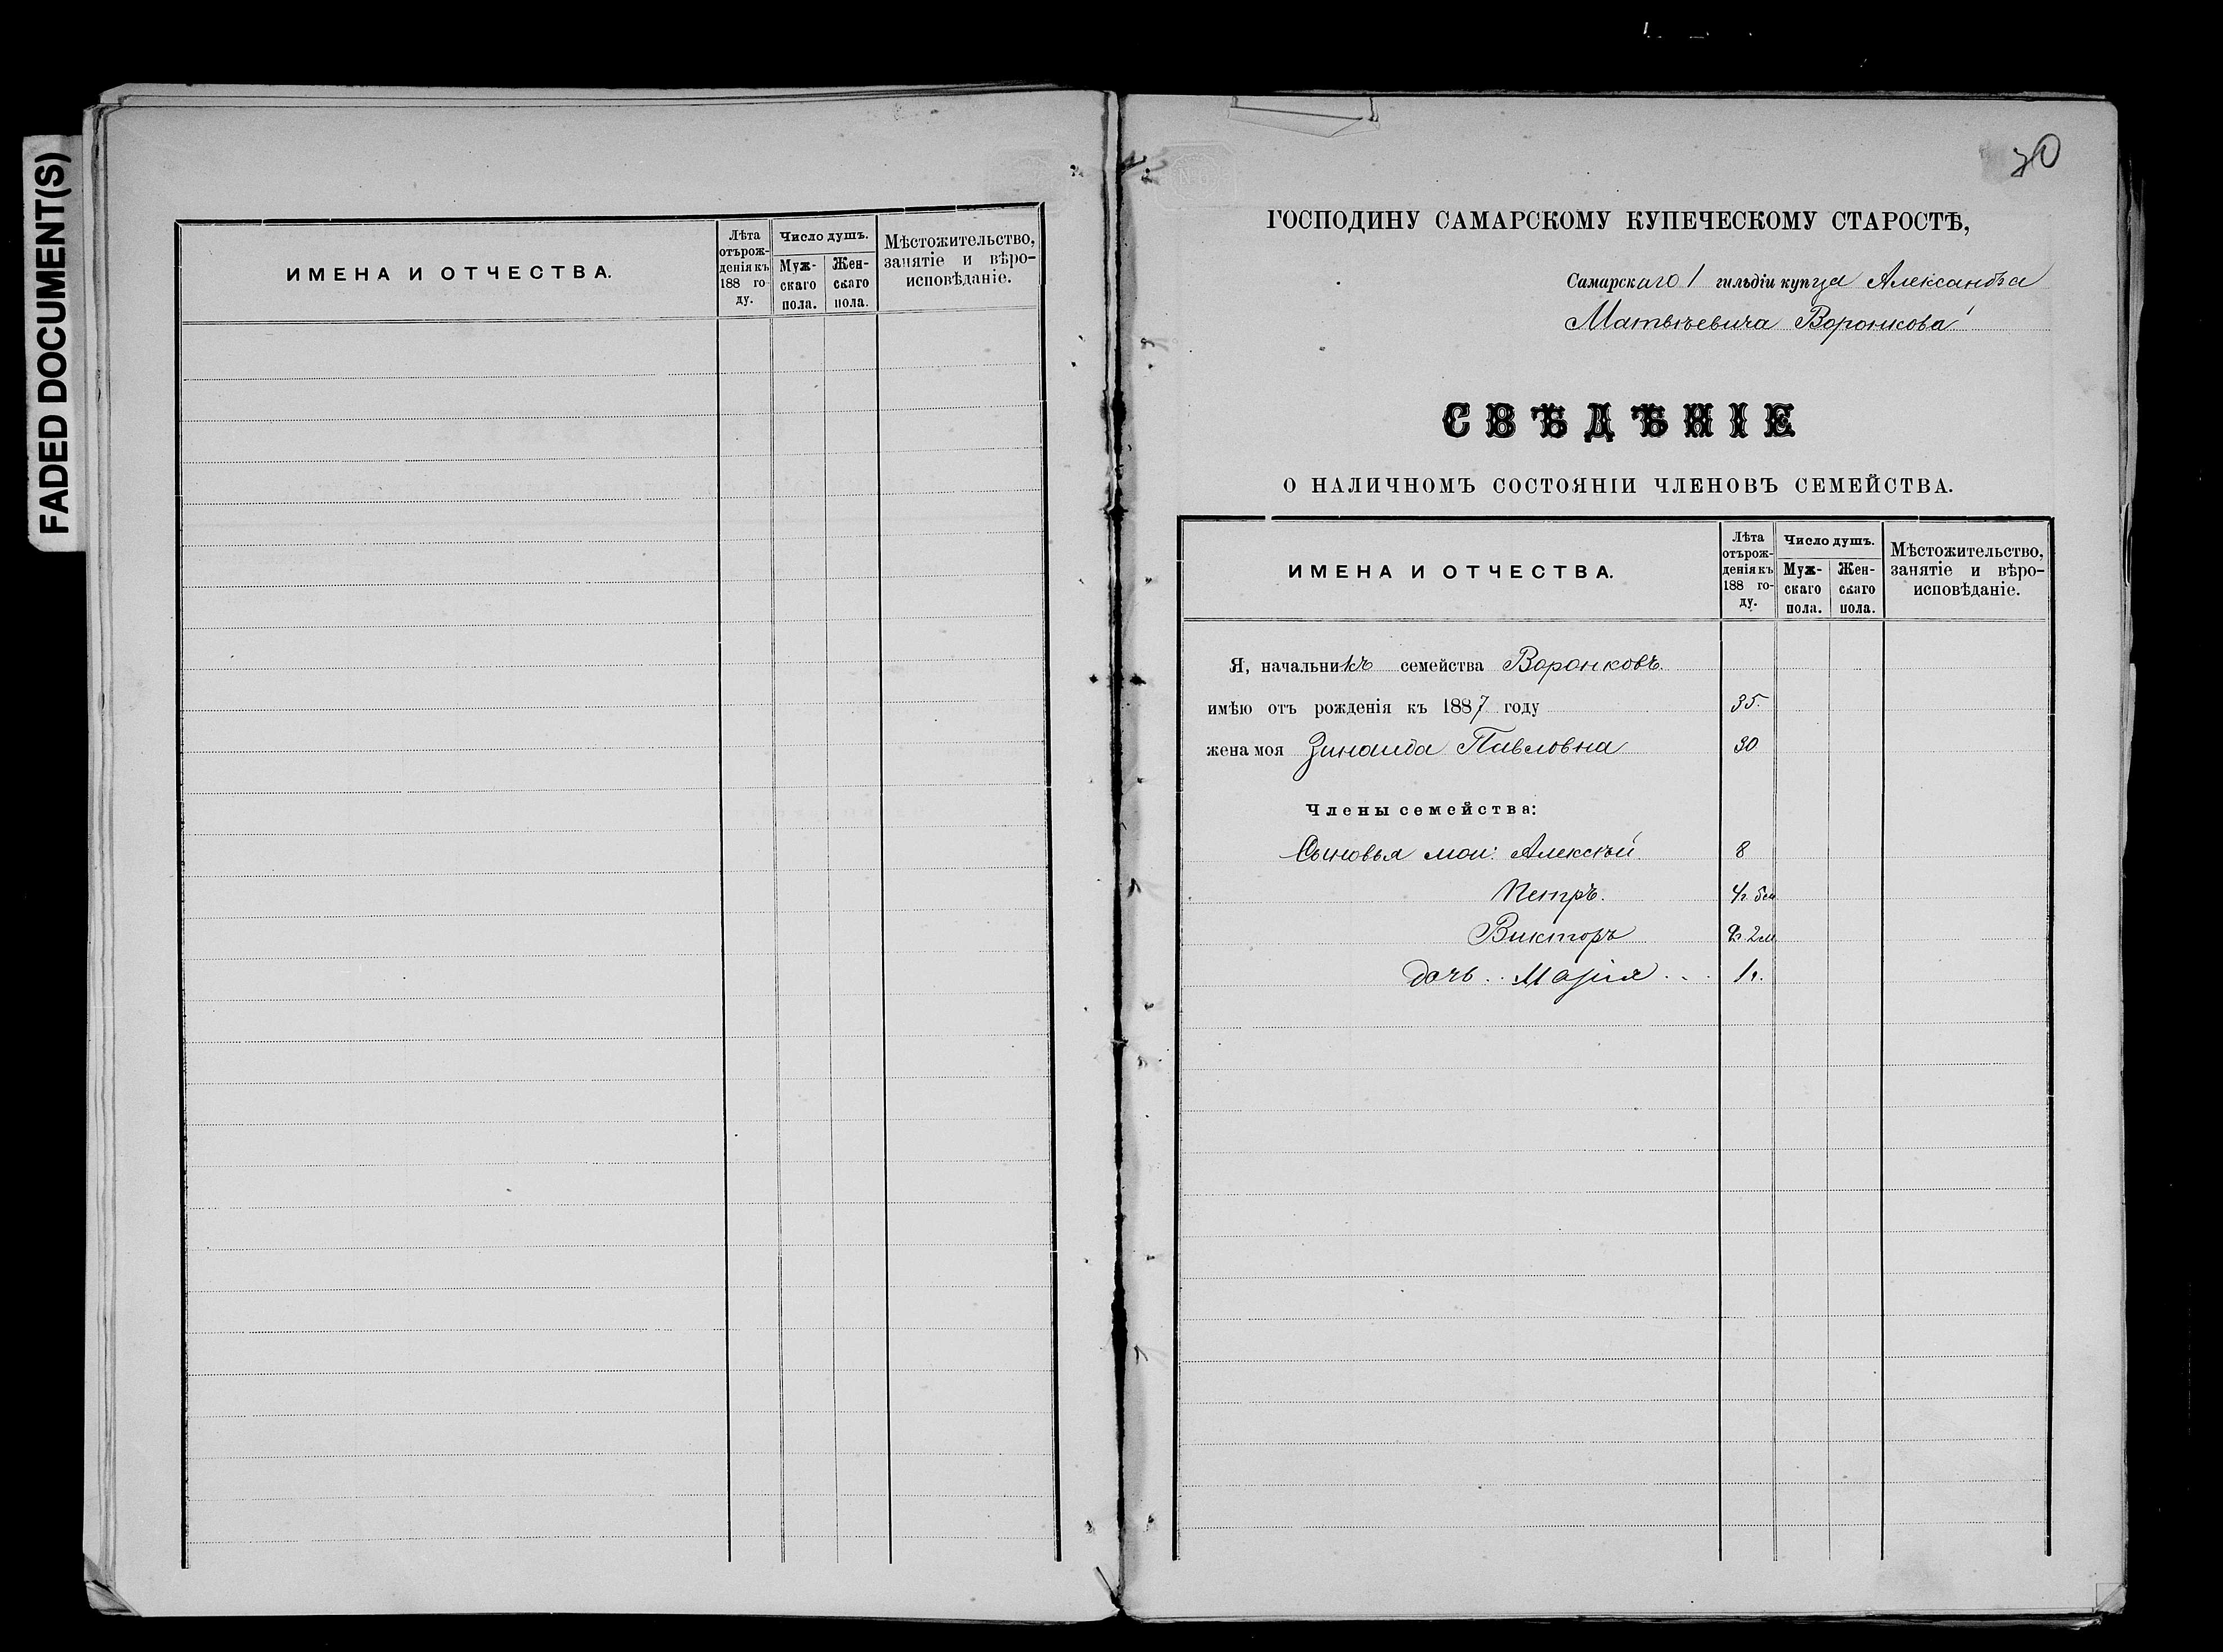 FADED DOCUMENT(S)
ИМЕНА И ОТЧЕСТВА.
Лѣта отърож-денія къ 188 го-ду.
Число душъ.
Муж-скаго пола.
Жен-скаго пола.
Мѣстожительство, занятіе и вѣро-исповѣданіе.
30
ГОСПОДИНУ САМАРСКОМУ КУПЕЧЕСКОМУ СТАРОСТѢ,
Самарскаго 1 гильдіи купца Александра
Матвѣевича Воронкова
СВѢДѢНІЕ
О НАЛИЧНОМЪ СОСТОЯНІИ ЧЛЕНОВЪ СЕМЕЙСТВА.
ИМЕНА И ОТЧЕСТВА.
Лѣта отърож-денія къ 188 го-ду.
Число душъ.
Муж-скаго пола.
Жен-скаго пола.
Мѣстожительство, занятіе и вѣро-исповѣданіе.
Я, начальникъ семейства Воронковъ.
имѣю отъ рожденія къ 1887 году 35.
жена моя Зинаида Павловна 30
Члены семейства:
Сыновья мои: Алексѣй 8
Петръ. 4г. 5м
Викторъ 2м
дочь .. Марія ... 1г.